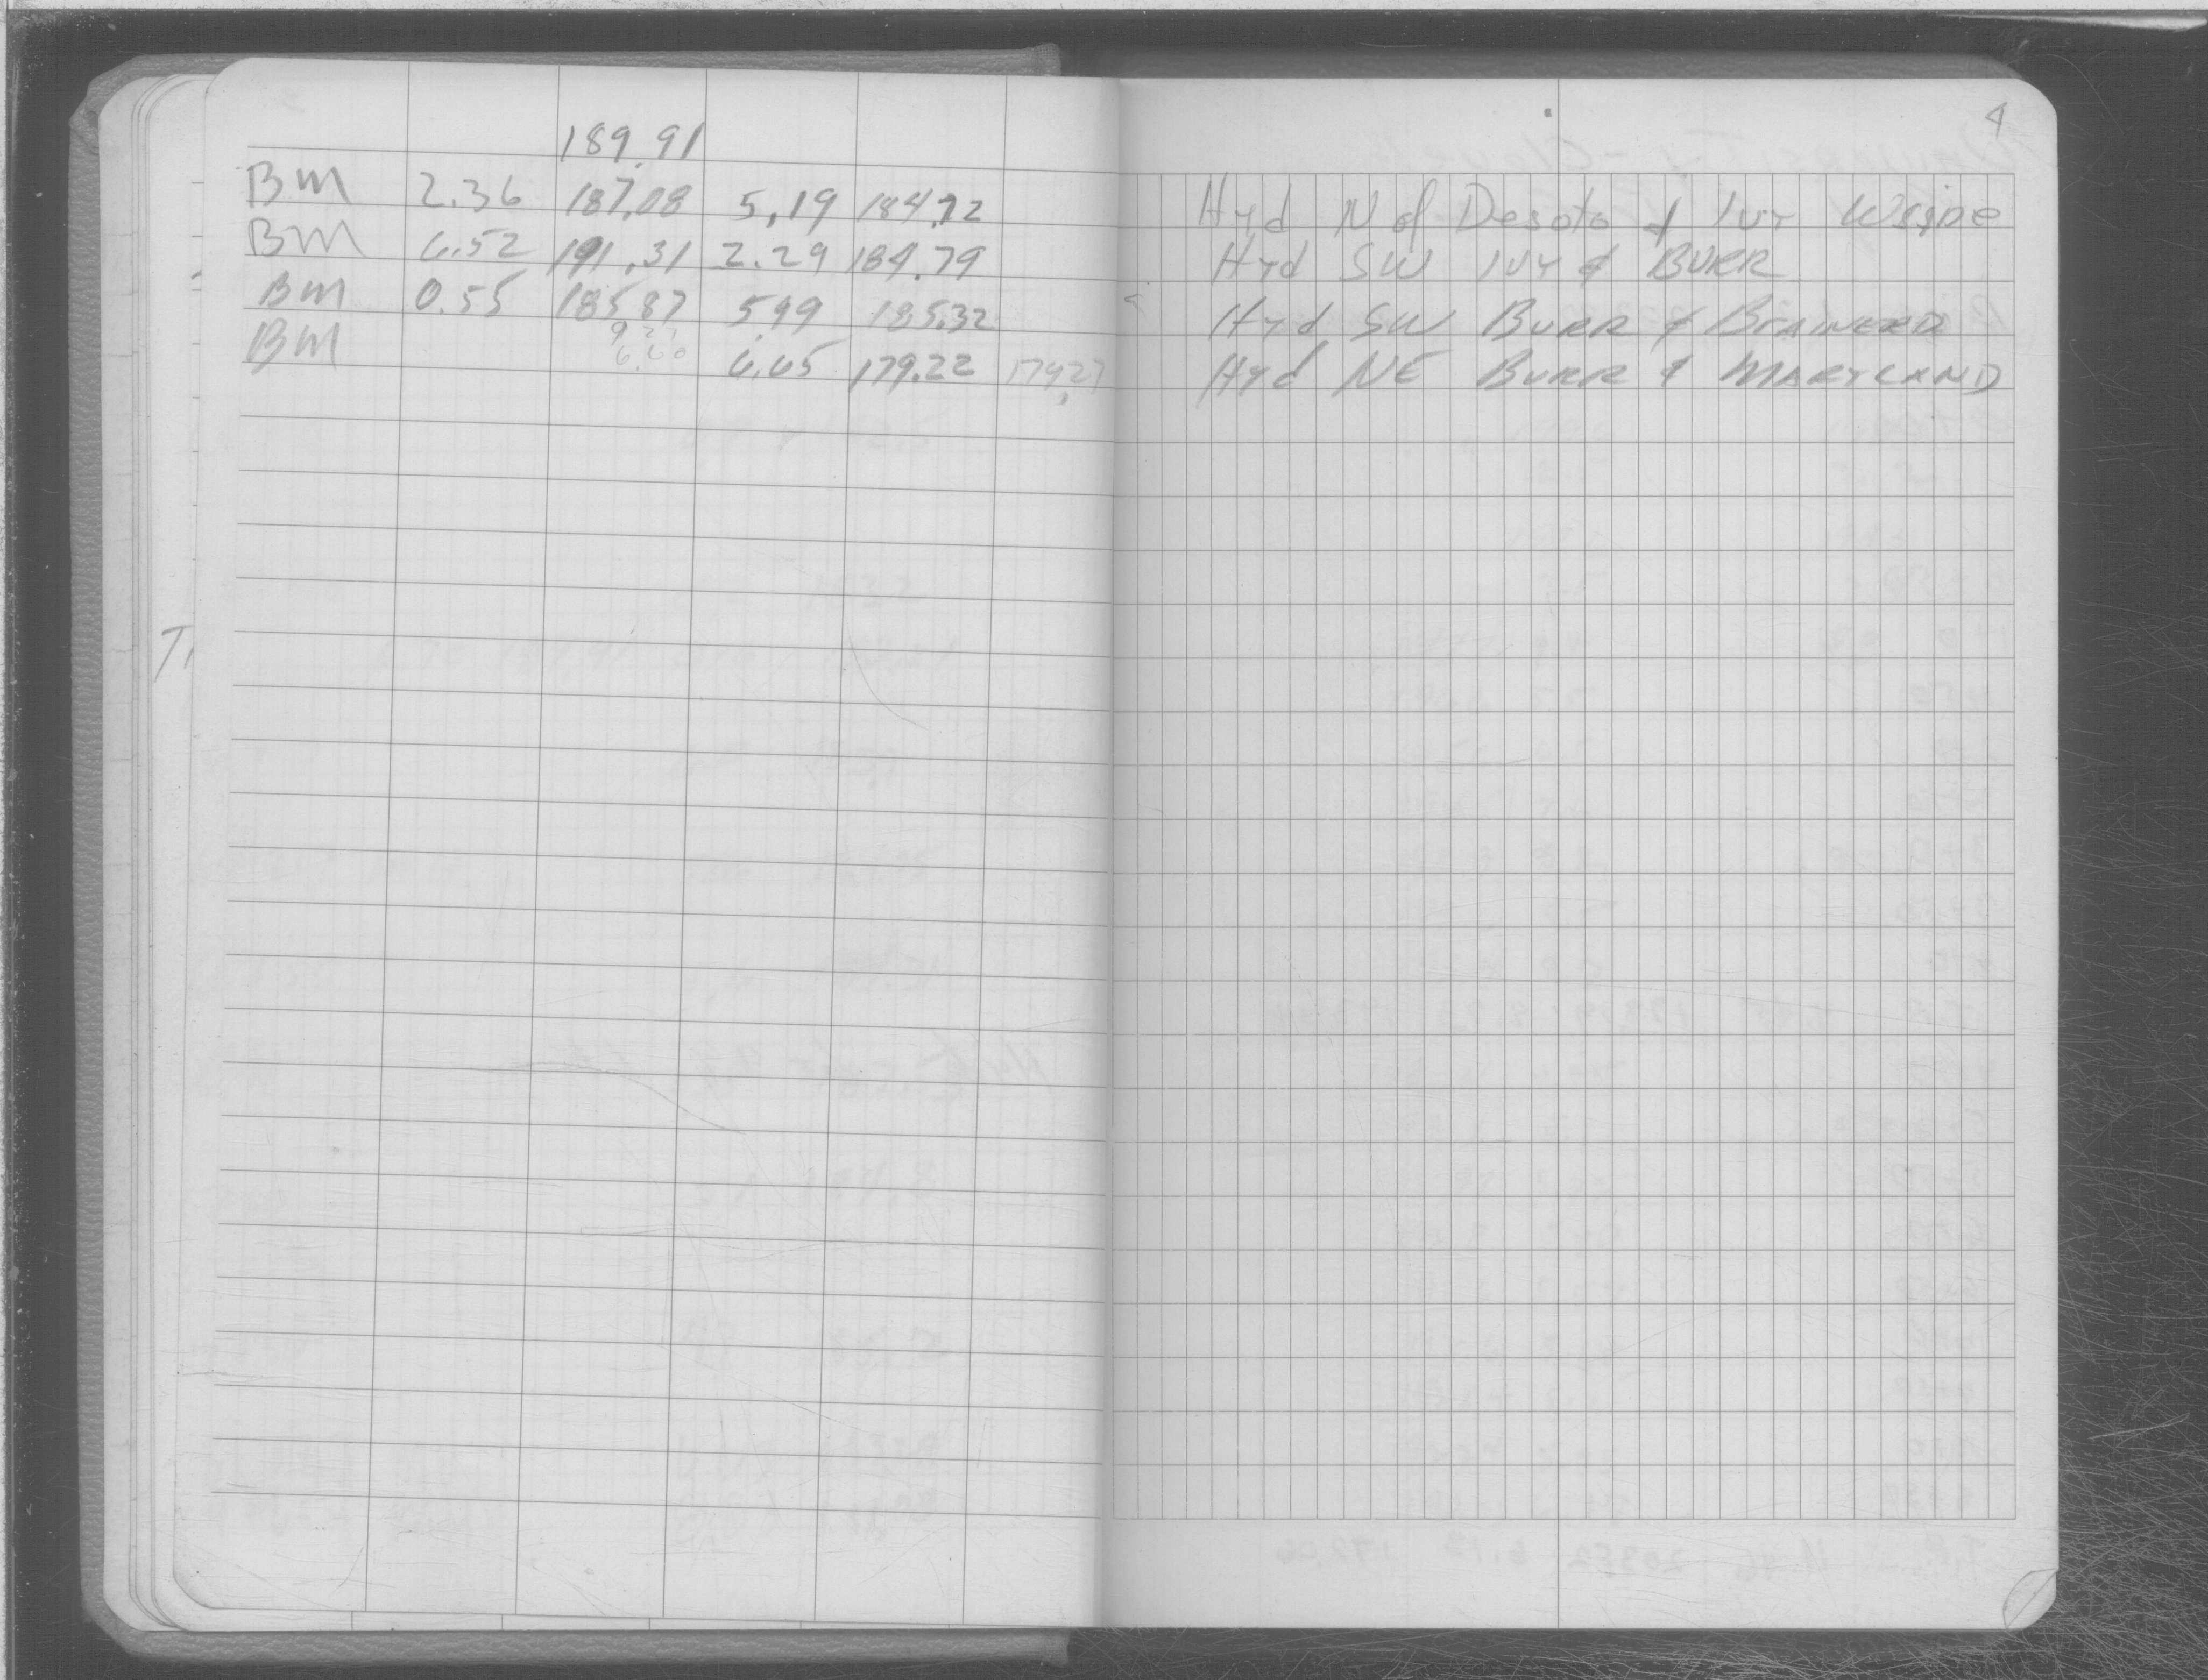 4
189.91
BM 2.36 187.08 5.19 184.72 Hyd N of Desoto & Ivy W SIDE
BM 6.52 191.31 2.29 184.79 Hyd SW IVY & BURR
BM 0.55 185.87 5.99 185.32 Hyd SW BURR & BRAINERD
BM 6.65 179.22 179.27 Hyd NE BURR & MARYLAND
9.27
6.60